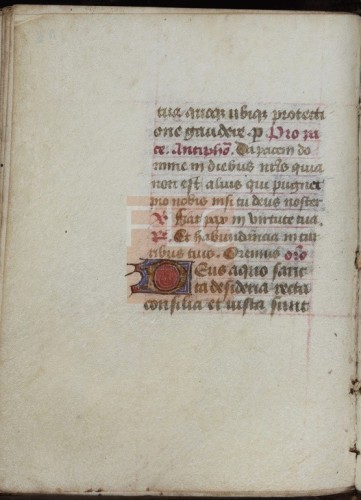 tua quoqz ubiqz protecti
one gaudere. p Pro pa
ce. Antipho. Da pacem do
mine in diebus nris quia
non est alius qui pugnet
pro nobis nisi tu deus noster
V Fiat pax in virtute tua.
R. Et habundancia in tur
ribus tuis. Oremus oro
Deus a quo sanc
ta desideria recta
consilia et iusta sunt